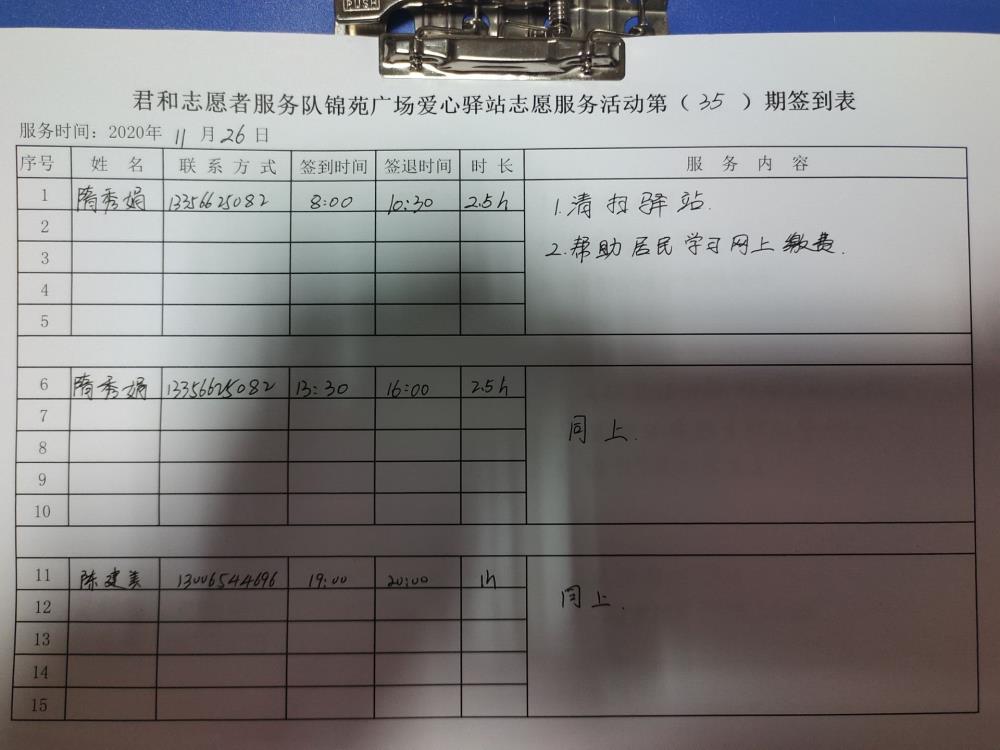 PUSH
君和志愿者服务队锦苑广场爱心驿站志愿服务活动第（35）期签到表
服务时间：2020年 11 月 26 日
序号 姓 名 联 系 方 式 签到时间 签退时间 时 长 服 务 内 容
1 隋秀娟 13356625082 8:00 10:30 2.5h 1.清扫驿站.
2 2.帮助居民学习网上缴费.
3
4
5
6 隋秀娟 13356625082 13:30 16:00 2.5h
7 同上.
8
9
10
11 陈建美 13006544696 19:00 20:00 1h
12 同上.
13
14
15